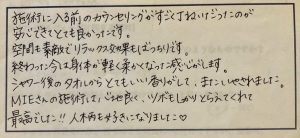 施術に入る前のカウンセリングがすごくていねいだったのが
安心できてとても良かったです。
空間も素敵でリラックス効果もばっちりです。
終わった今は身体が軽く柔かくなった感じがします。
シャワー後のタオルからとてもいい香りがして、またいやされました。
MIEさんの施術は心地良く、ツボもしっかりとらえてくれて
最高でした!! 人木丙も好きになりました♡